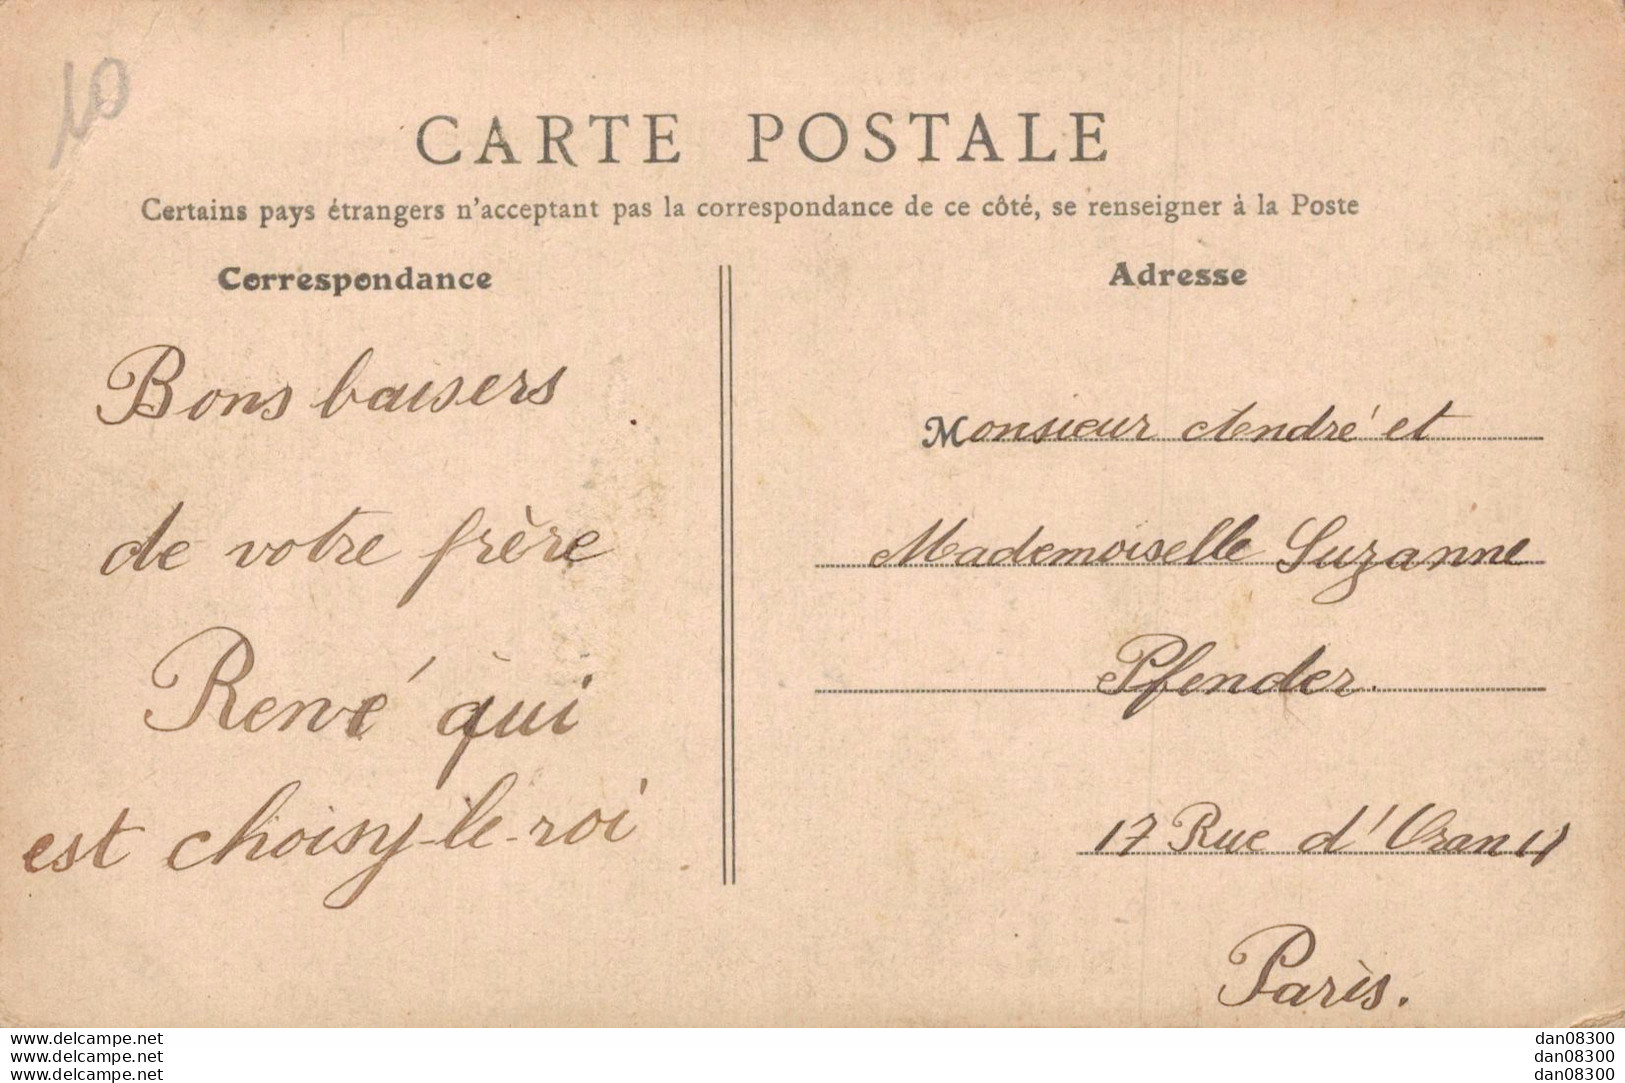 10
CARTE POSTALE
Certains pays étrangers n'acceptent pas la correspondance de ce côté, se renseigner à la Poste
Correspondance
Bons baisers
de votre frère
René qui
est choisy-le-roi
Adresse
Monsieur André et
Mademoiselle Suzanne
Pfender.
17 Rue d'Oran 17
Paris.
www.delcampe.net
www.delcampe.net
www.delcampe.net
dan08300
dan08300
dan08300